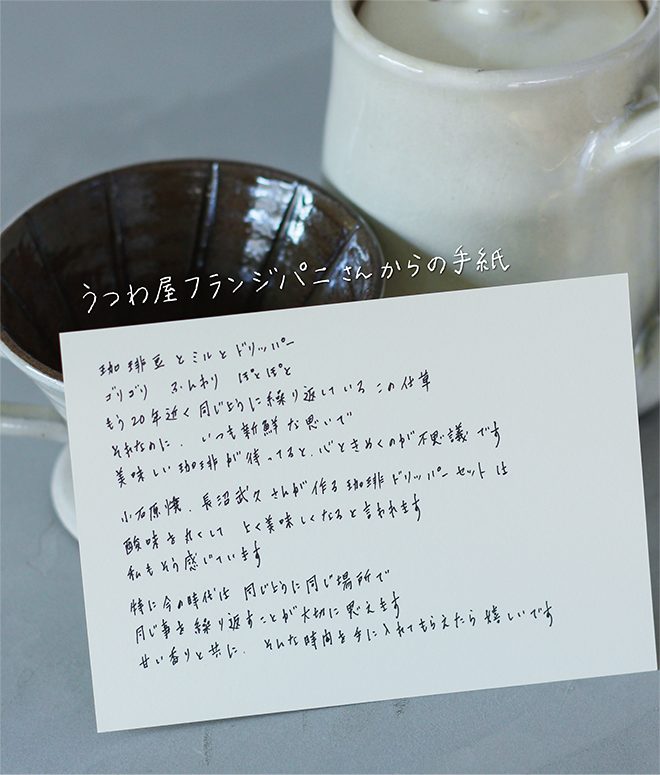 うつわ屋フランジパニさんからの手紙
珈琲豆とミルとドリッパー
ゴリゴリ ふんわり ぽとぽと
もう20年近く同じように繰り返しているこの仕草
それなのに、いつも新鮮な思いで
美味しい珈琲が待ってると、心ときめくのが不思議です
小石原焼、長沼武久さんが作る珈琲ドリッパーセットは
酸味を丸くして よく美味しくなると言われます
私もそう感じています
特に今の時代は 同じように同じ場所で
同じ事を繰り返すことが大切に思えます
甘い香りと共に、そんな時間を手に入れてもらえたら嬉しいです